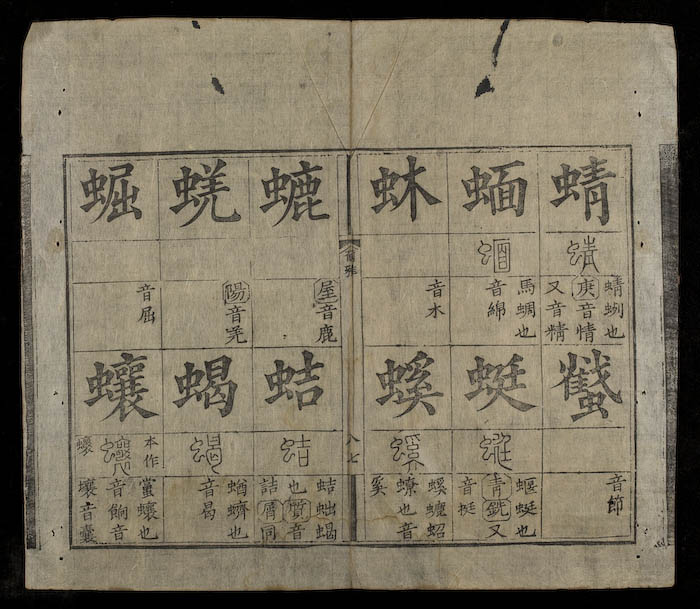 蜻
蜻蛚也
庚音情
又音精
蝒
馬蜩也
音綿
蚞
音木
蠽
音節
蜓
蝘蜓也
青銑又
音挺
螇
螇蛁
蟟也音
奚
爾雅
八七
螰
屋音鹿
蜣
陽音羌
𧌑
音屈
蛣
蛣蝎
也質音
詰屑同
蝎
蝤蠐也
音曷
蠰
本作
蠰
當蠰也
音餉音
壤音囊